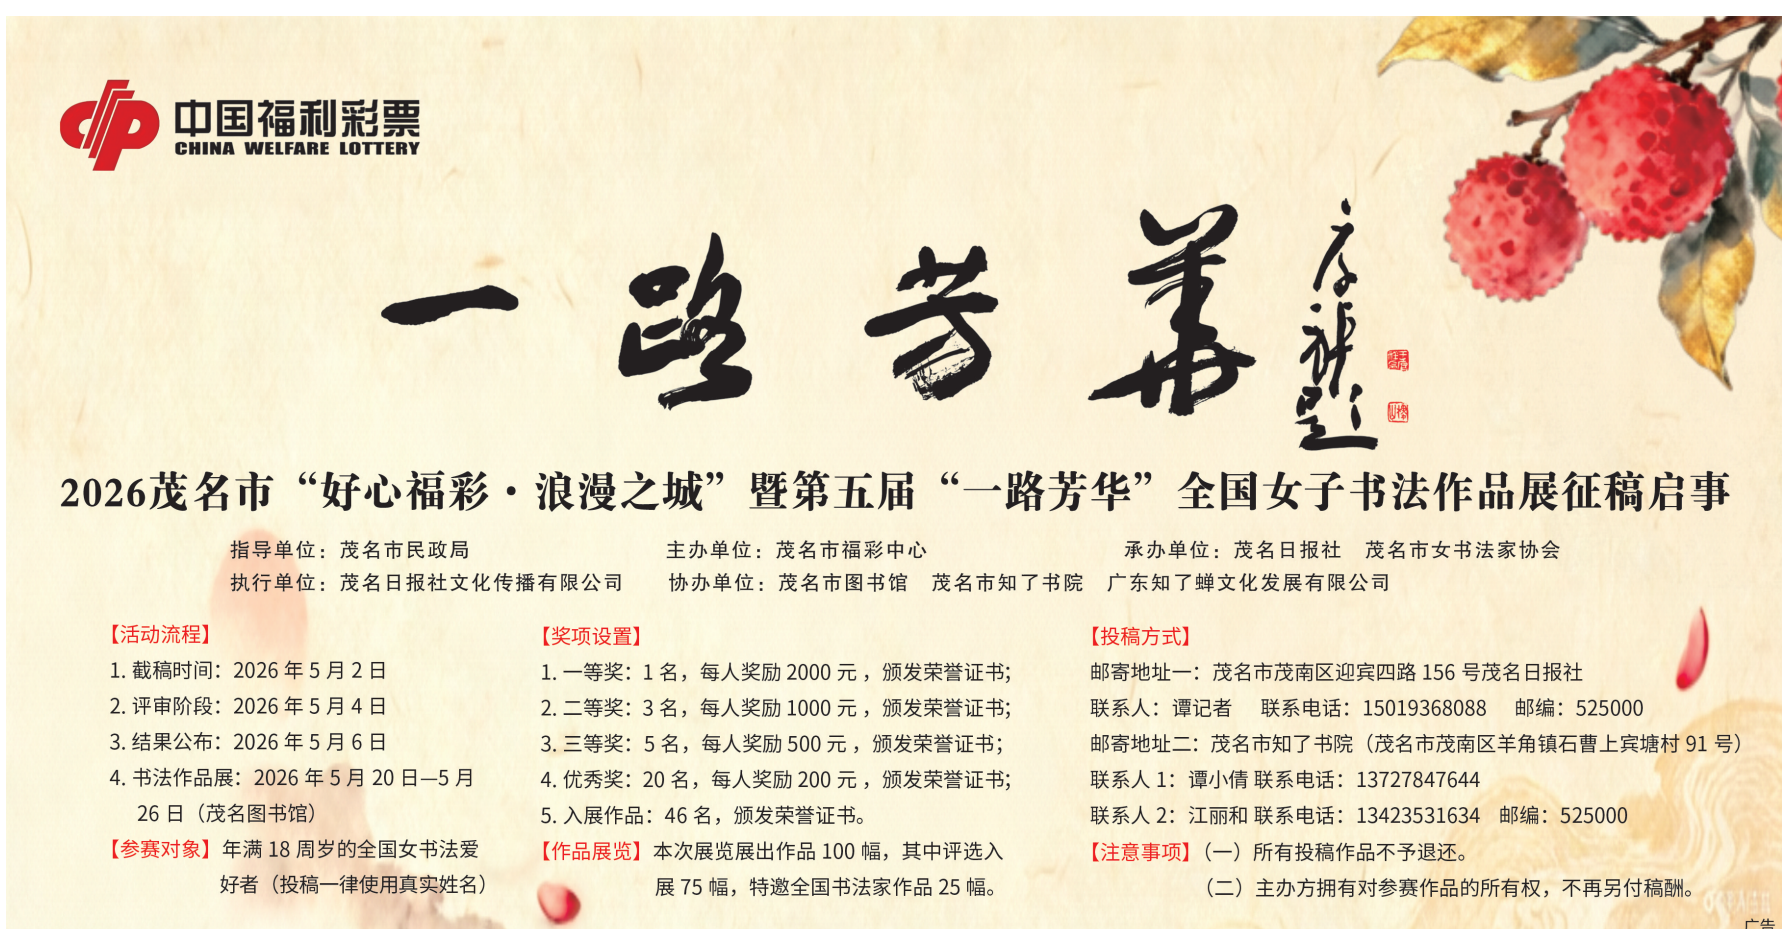 中国福利彩票
CHINA WELFARE LOTTERY
一路芳華
2026茂名市“好心福彩·浪漫之城”暨第五届“一路芳华”全国女子书法作品展征稿启事
指导单位：茂名市民政局 主办单位：茂名市福彩中心 承办单位：茂名日报社 茂名市女书法家协会
执行单位：茂名日报社文化传播有限公司 协办单位：茂名市图书馆 茂名市知了书院 广东知了蝉文化发展有限公司
【活动流程】
1. 截稿时间：2026 年 5 月 2 日
2. 评审阶段：2026 年 5 月 4 日
3. 结果公布：2026 年 5 月 6 日
4. 书法作品展：2026 年 5 月 20 日—5 月
26 日（茂名图书馆）
【参赛对象】年满 18 周岁的全国女书法爱
好者（投稿一律使用真实姓名）
【奖项设置】
1. 一等奖：1 名，每人奖励 2000 元 ，颁发荣誉证书；
2. 二等奖：3 名，每人奖励 1000 元 ，颁发荣誉证书；
3. 三等奖：5 名，每人奖励 500 元 ，颁发荣誉证书；
4. 优秀奖：20 名，每人奖励 200 元 ，颁发荣誉证书；
5. 入展作品：46 名，颁发荣誉证书。
【作品展览】本次展览展出作品 100 幅，其中评选入
展 75 幅，特邀全国书法家作品 25 幅。
【投稿方式】
邮寄地址一：茂名市茂南区迎宾四路 156 号茂名日报社
联系人：谭记者 联系电话：15019368088 邮编：525000
邮寄地址二：茂名市知了书院（茂名市茂南区羊角镇石曹上宾塘村 91 号）
联系人 1：谭小倩 联系电话：13727847644
联系人 2：江丽和 联系电话：13423531634 邮编：525000
【注意事项】（一）所有投稿作品不予退还。
（二）主办方拥有对参赛作品的所有权，不再另付稿酬。
广告